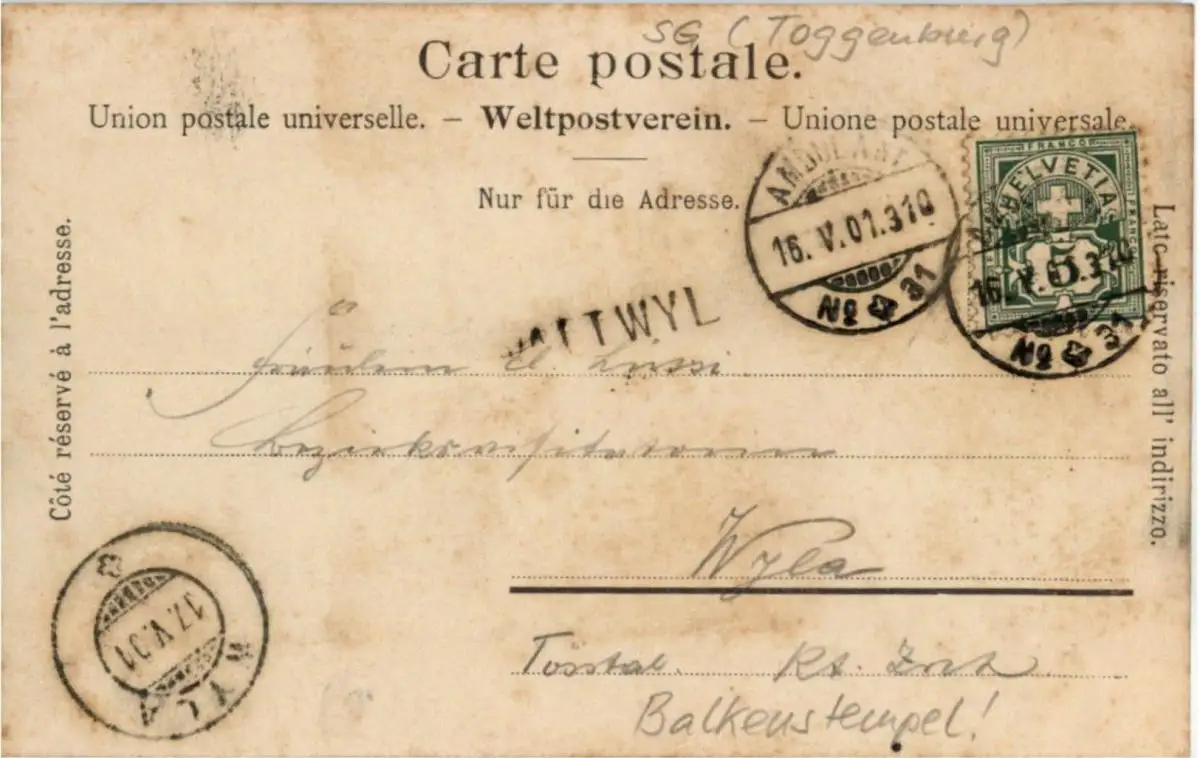 SG (Toggenburg)
Carte postale.
Union postale universelle. – Weltpostverein. – Unione postale universale.
Nur für die Adresse.
Côté réservé à l'adresse.
Lato riservato all' indirizzo.
AMBULANT
16. V. 01. 310
No 31
FRANCO
HELVETIA
FRANCO
5
16. V. 01. 310
No 31
WATTWYL
Fräulein
Wyla
Tösstal. Kt. Zrch
Balkenstempel!
WYLA
17. V. 01